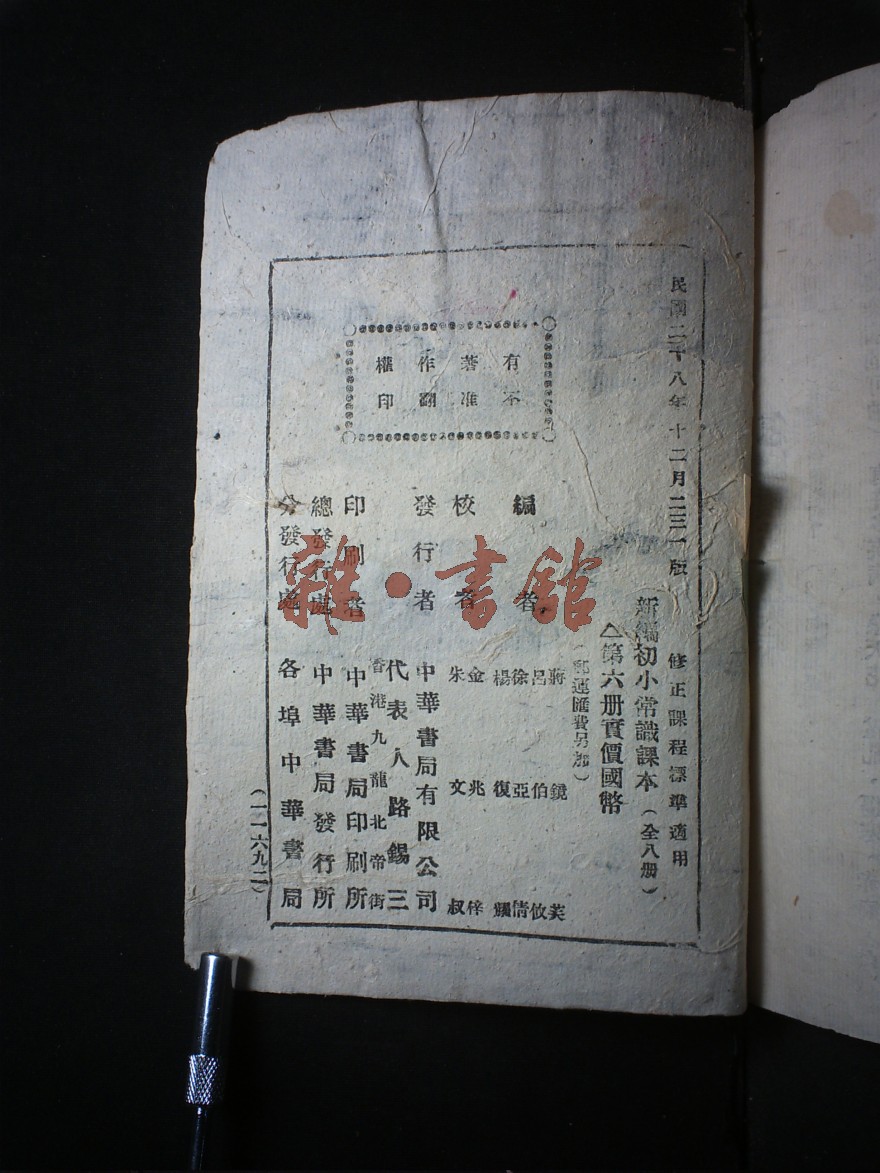 民國二十八年十二月二三一版
修正課程標準適用
新編初小常識課本（全八册）
△第六册實價國幣
（郵運匯費另加）
有著作權
不准翻印
編者
蔣鏡芙
呂伯攸
徐亞倩
楊復
校者
金兆梓
朱文叔
發行者
中華書局有限公司
代表人路錫三
印刷者
香港九龍北帝街
中華書局印刷所
總發行處
中華書局發行所
分發行處
各埠中華書局
（一一六九二）
雜·書館